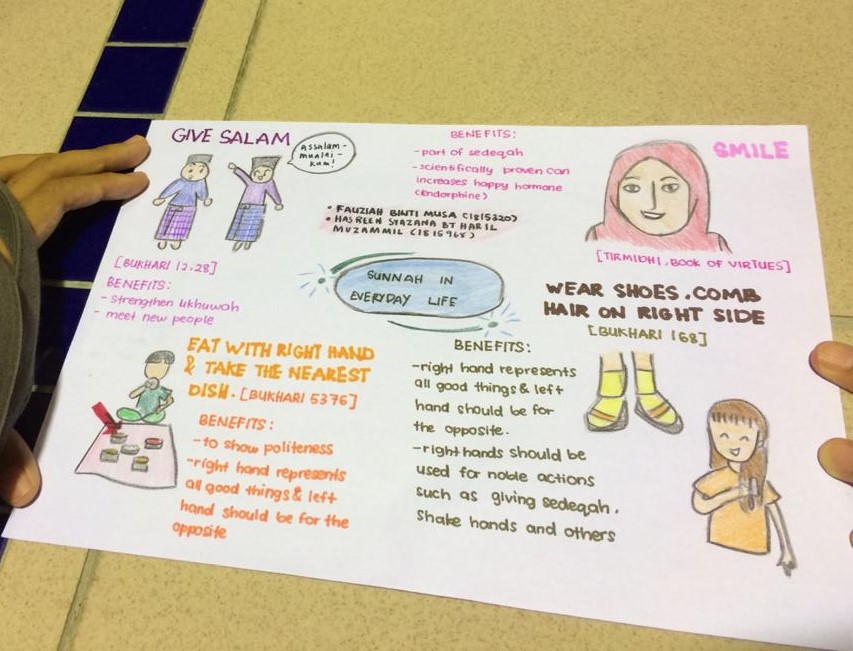 GIVE SALAM
Assalam-
mualai-
kum!
[BUKHARI 12.28]
BENEFITS:
- strengthen ukhuwah
- meet new people
BENEFITS:
- part of sedeqah
- scientifically proven can
increases happy hormone
(endorphine)
SMILE
[TIRMIDHI, BOOK OF VIRTUES]
• FAUZIAH BINTI MUSA (1815320)
• HASREEN SYAZANA BT HARIL
MUZAMMIL (1815968)
SUNNAH IN
EVERYDAY LIFE
EAT WITH RIGHT HAND
& TAKE THE NEAREST
DISH. [BUKHARI 5376]
BENEFITS:
- to show politeness
- right hand represents
all good things & left
hand should be for the
opposite
WEAR SHOES, COMB
HAIR ON RIGHT SIDE
[BUKHARI 168]
BENEFITS:
- right hand represents
all good things & left
hand should be for
the opposite.
- right hands should be
used for noble actions
such as giving sedeqah,
shake hands and others